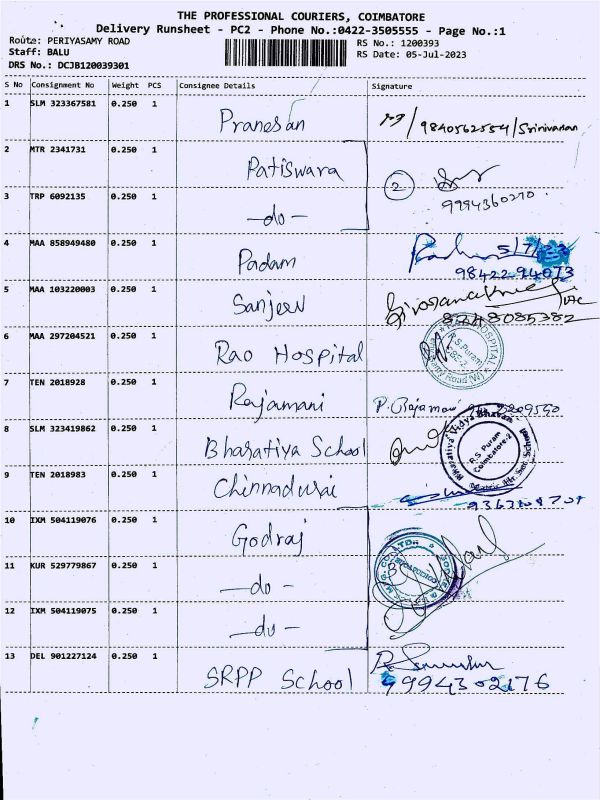 THE PROFESSIONAL COURIERS, COIMBATORE
Delivery Runsheet - PC2 - Phone No.:0422-3505555 - Page No.:1
Route: PERIYASAMY ROAD
RS No.: 1200393
Staff: BALU
RS Date: 05-Jul-2023
DRS No.: DCJB120039301
S No Consignment No Weight PCS Consignee Details Signature
1 SLM 323367581 0.250 1 Pranesan 9840562554/Srinivasan
2 MTR 2341731 0.250 1 Patiswara 2
3 TRP 6092135 0.250 1 -do- 9994360270
4 MAA 858949480 0.250 1 Padam 5/7/23
98422 94073
5 MAA 103220003 0.250 1 Sanjeev
8248085382
6 MAA 297204521 0.250 1 Rao Hospital HOSPITAL R.S.Puram
7 TEN 2018928 0.250 1 Rajamani P. Rajamani
8 SLM 323419862 0.250 1 Bharatiya School Bharatiya Vidya Bhavan R.S. Puram Coimbatore-2
9 TEN 2018983 0.250 1 Chinnadurai
10 IXM 504119076 0.250 1 Godraj
11 KUR 529779867 0.250 1 -do-
12 IXM 504119075 0.250 1 -do-
13 DEL 901227124 0.250 1 SRPP School
9994302176